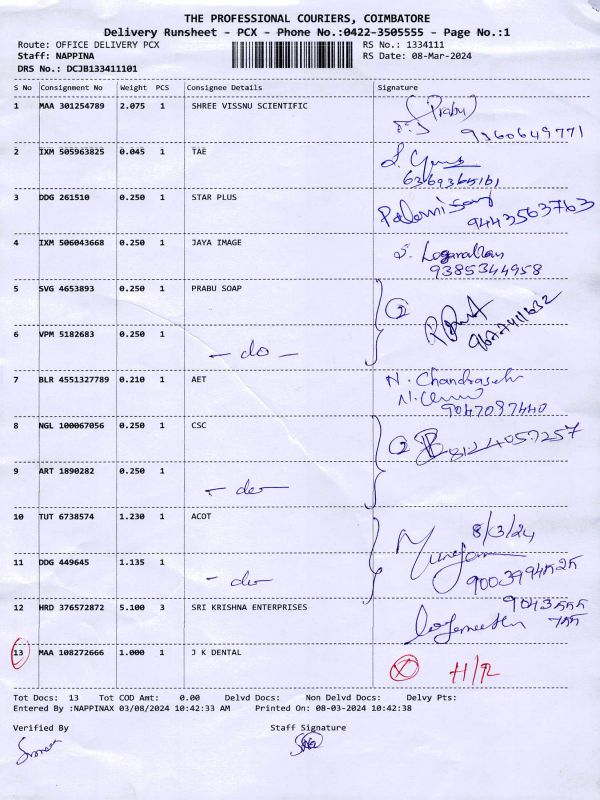 THE PROFESSIONAL COURIERS, COIMBATORE
Delivery Runsheet - PCX - Phone No.:0422-3505555 - Page No.:1
Route: OFFICE DELIVERY PCX RS No.: 1334111
Staff: NAPPINA RS Date: 08-Mar-2024
DRS No.: DCJB133411101
S No Consignment No Weight PCS Consignee Details Signature
1 MAA 301254789 2.075 1 SHREE VISSNU SCIENTIFIC Prabu
9360649771
2 IXM 505963825 0.045 1 TAE
3 DDG 261510 0.250 1 STAR PLUS
9443563763
4 IXM 506043668 0.250 1 JAYA IMAGE
9385344958
5 SVG 4653893 0.250 1 PRABU SOAP 2
6 VPM 5182683 0.250 1
- do -
7 BLR 4551327789 0.210 1 AET N.
9047097440
8 NGL 100067056 0.250 1 CSC 2 8124057257
9 ART 1890282 0.250 1
- do -
10 TUT 6738574 1.230 1 ACOT 8/3/24
11 DDG 449645 1.135 1
- do -
12 HRD 376572872 5.100 3 SRI KRISHNA ENTERPRISES 9043555
755
13 MAA 108272666 1.000 1 J K DENTAL X H/R
Tot Docs: 13 Tot COD Amt: 0.00 Delvd Docs: Non Delvd Docs: Delvy Pts:
Entered By :NAPPINAX 03/08/2024 10:42:33 AM Printed On: 08-03-2024 10:42:38
Verified By Staff Signature